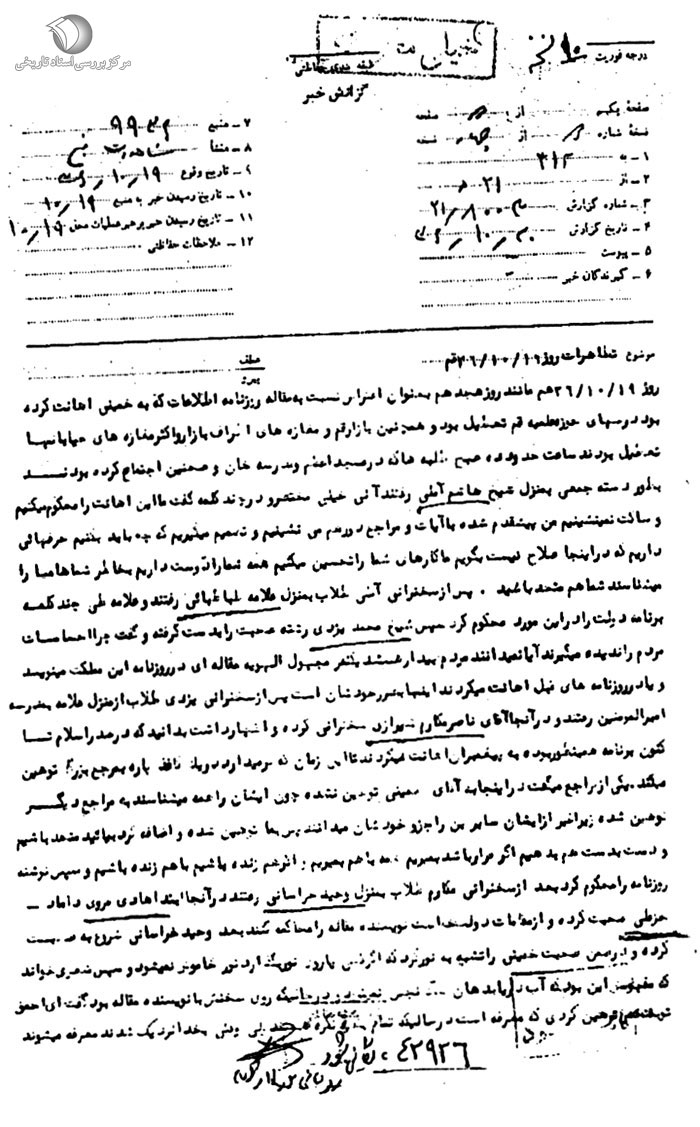 مرکز بررسی اسناد تاریخی
درجه فوریت
طبقه بندی حفاظتی
گزارش خبر
صفحه یکم از صفحه
نسخه شماره از نسخه
۱ - به ۳۱۲
۲ - از ۲۱
۳ - شماره گزارش
۴ - تاریخ گزارش
۵ - پیوست
۶ - گیرندگان خبر
۷ - منبع
۸ - منشأ
۹ - تاریخ وقوع
۱۰ - تاریخ رسیدن خبر به منبع ۱۰/۱۹
۱۱ - تاریخ رسیدن خبر به رهبر عملیات محل ۱۰/۱۹
۱۲ - ملاحظات حفاظتی
موضوع تظاهرات روز قم
عطف
روز ۳۶/۱۰/۱۹ هم مانند روز هجدهم بعنوان اعتراض نسبت به مقاله روزنامه اطلاعات که به خمینی اهانت کرده
بود درسهای حوزه علمیه قم تعطیل بود و همچنین بازار قم و مغازه های اطراف بازار و اکثر مغازه های خیابانها
تعطیل بودند ساعت حدود ده صبح طلبه ها که در مسجد اعظم و مدرسه خان و صحنین اجتماع کرده بودند
بطور دسته جمعی بمنزل شیخ هاشم آملی رفتند آملی خیلی مختصر و در چند کلمه گفت ما این اهانت را محکوم میکنیم
و ساکت نمینشینیم من پیشقدم شده با آیات و مراجع دور هم می نشینیم و تصمیم میگیریم که چه باید بکنیم حرفهائی
داریم که در اینجا صلاح نیست بگویم ما کارهای شما را تحسین میکنیم همه شما را دوست داریم بخاطر شماها ما را
میشناسند شما هم متحد باشید . پس از سخنرانی آملی طلاب بمنزل علامه طباطبائی رفتند و علامه طی چند کلمه
برنامه دولت را در این مورد محکوم کرد سپس شیخ محمد یزدی رشته صحبت را بدست گرفته و گفت چرا احساسات
مردم را ندیده میگیرند آیا نمیدانند مردم بیدار هستند یکنفر مجهول الهویه مقاله ای در روزنامه این مملکت مینویسد
و یا در روزنامه های قبل اهانت میکردند اینها بضرر خودشان است پس از سخنرانی یزدی طلاب از منزل علامه بمدرسه
امیرالمومنین رفتند و در آنجا آقای ناصر مکارم شیرازی سخنرانی کرده و اظهار داشت بدانید که در صدر اسلام تا
کنون برنامه همینطور بوده به پیغمبران اهانت میکردند تا این زمان که برمیدارد در یک کاغذ پاره بمرجع بزرگ توهین
میکند یکی از مراجع میگفت در اینجا به آقای خمینی توهین نشده چون ایشان را همه میشناسند به مراجع دیگر
توهین شده زیرا غیر از ایشان سایرین را جزو خودشان میدانند پس بما توهین شده و اضافه کرد بیائید متحد باشیم
و دست بدست هم بدهیم اگر قرار باشد بمیریم همه با هم بمیریم و اگر هم زنده باشیم با هم زنده باشیم و سپس نوشته
روزنامه را محکوم کرد بعد از سخنرانی مکارم طلاب بمنزل وحید خراسانی رفتند در آنجا ابتدا هادی مروی داماد -
خزعلی صحبت کرده و از مقامات دولت خواست نویسنده مقاله را محاکمه کنند بعد وحید خراسانی شروع به صحبت
کرده و در ضمن صحبت خمینی را تشبیه به نور کرد که اگر خاموش نمیشود و سپس شعری خواند
که مفهومش این بود که آب دریا بدهان سگ نجس نمیشود در حالیکه روی سخنش با نویسنده مقاله بود گفت ای احمق
توهین کردی که معرفه است در حالیکه تمام نکره هستند ولی وقتی بخدا نزدیک شدند معرفه میشوند
۴۲۹۲۶